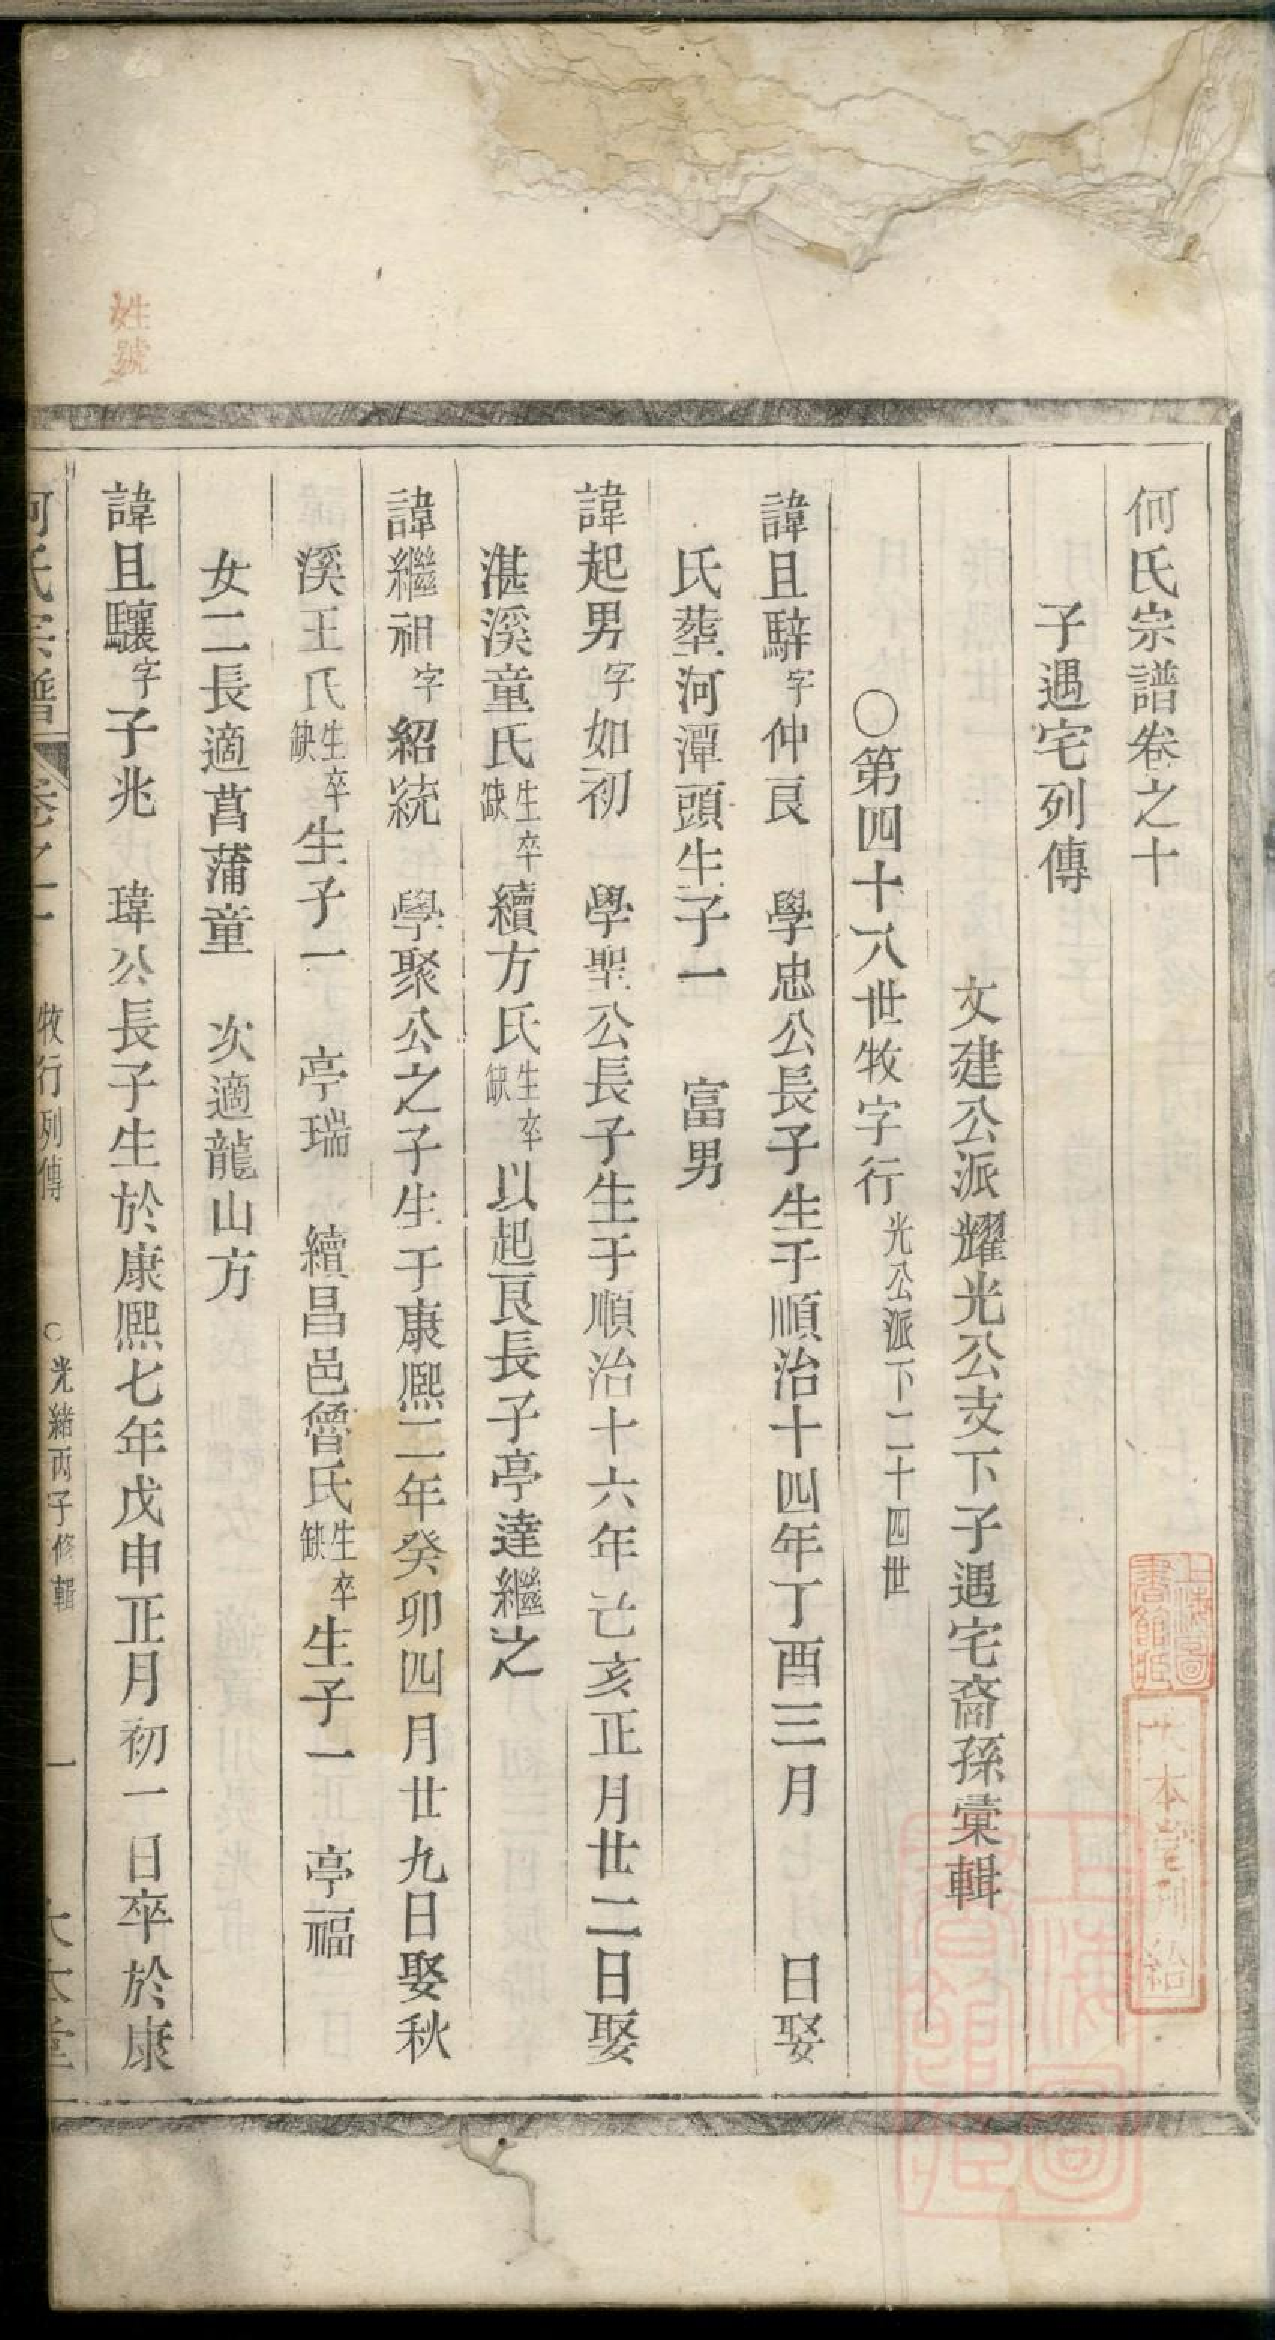 何氏宗譜卷之十
子遇宅列傳
文建公派耀光公支下子遇宅裔孫彙輯
○第四十八世牧字行光公派下二十四世
諱且騂字仲良　學忠公長子生于順治十四年丁酉三月　　日娶
氏葬河潭頭生子一　富男
諱起男字如初　學聖公長子生于順治十六年己亥正月廿二日娶
湛溪童氏生卒缺續方氏生卒缺以起良長子亭達繼之
諱繼祖字紹統　學聚公之子生于康熙二年癸卯四月廿九日娶秋
溪王氏生卒缺生子一　亭瑞　續昌邑魯氏生卒缺生子一　亭福
女二長適菖蒲童　次適龍山方
諱且驤字子兆　瑋公長子生於康熙七年戊申正月初一日卒於康
何氏宗譜　卷之十　牧行列傳　○光緒丙子修輯　一　大本堂
姓號
上海圖書館藏
大本堂刊給
上海圖書館藏